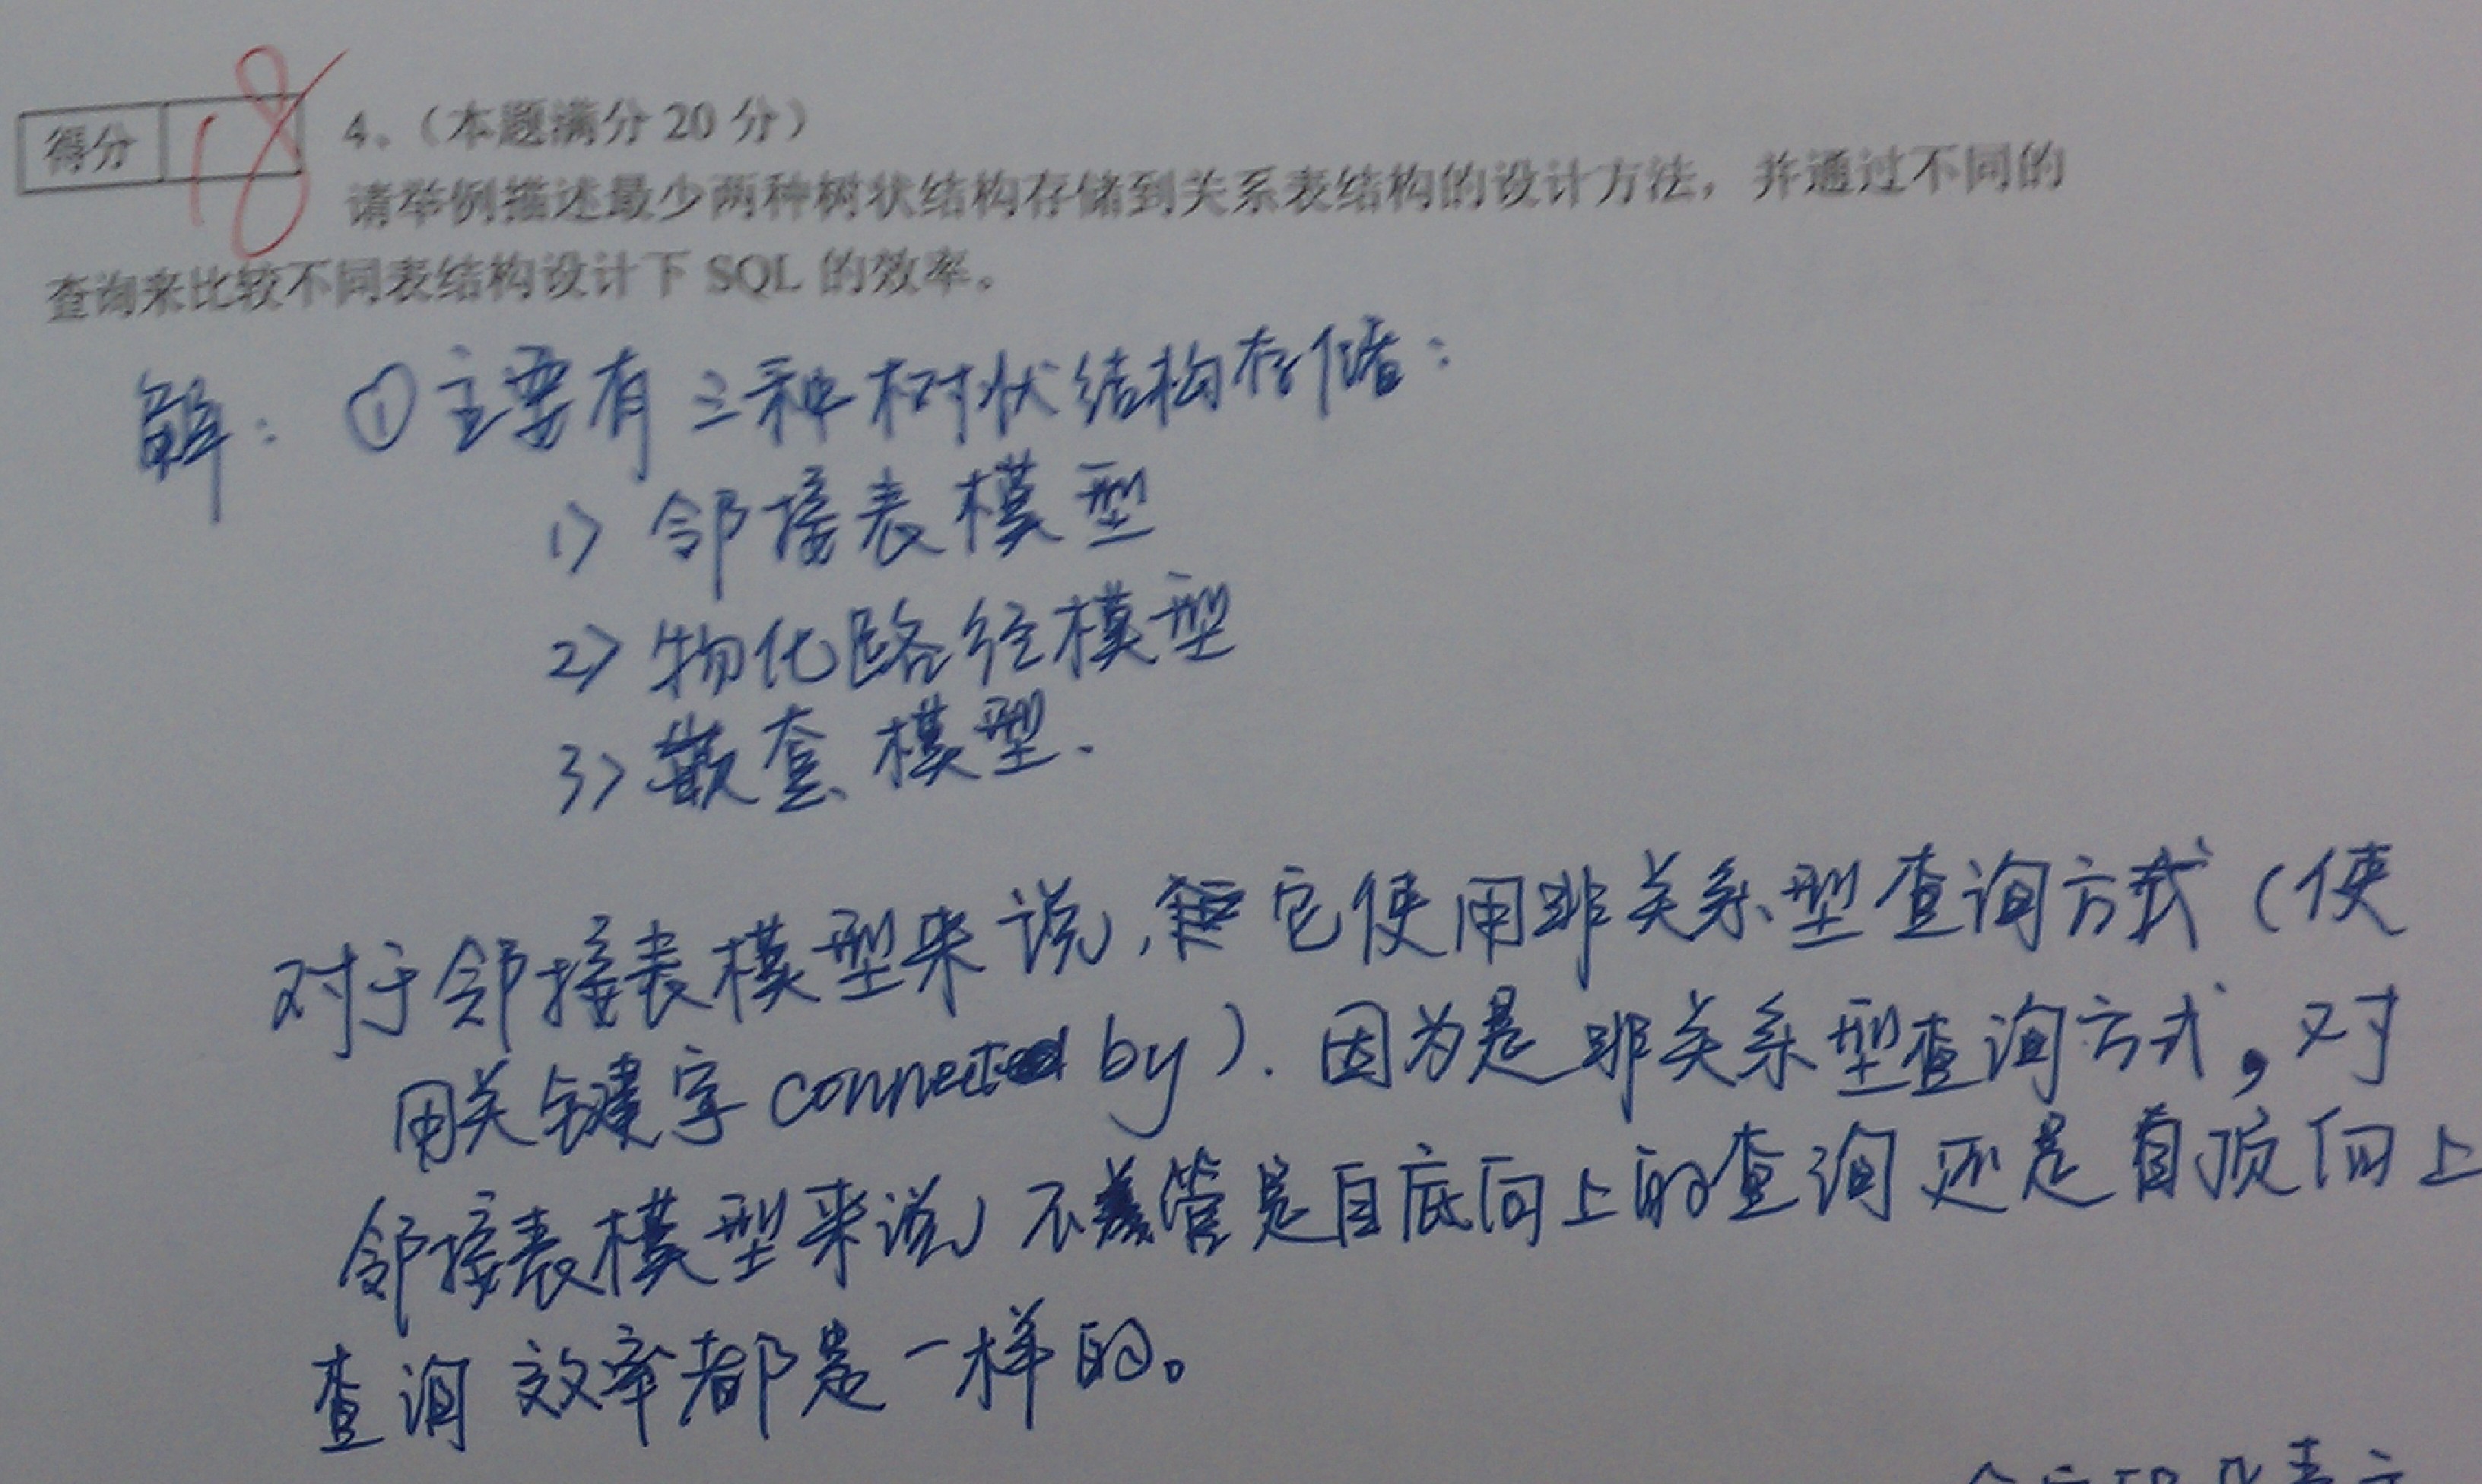 得分 18 4、（本题满分 20 分）
请举例描述最少两种树状结构存储到关系表结构的设计方法，并通过不同的
查询来比较不同表结构设计下 SQL 的效率。
解：①主要有三种树状结构存储：
1) 邻接表模型
2) 物化路径模型
3) 嵌套模型.
对于邻接表模型来说，它使用非关系型查询方式（使
用关键字 connect by）. 因为是非关系型查询方式，对
邻接表模型来说，不管是自底向上的查询还是自顶向上
查询效率都是一样的。